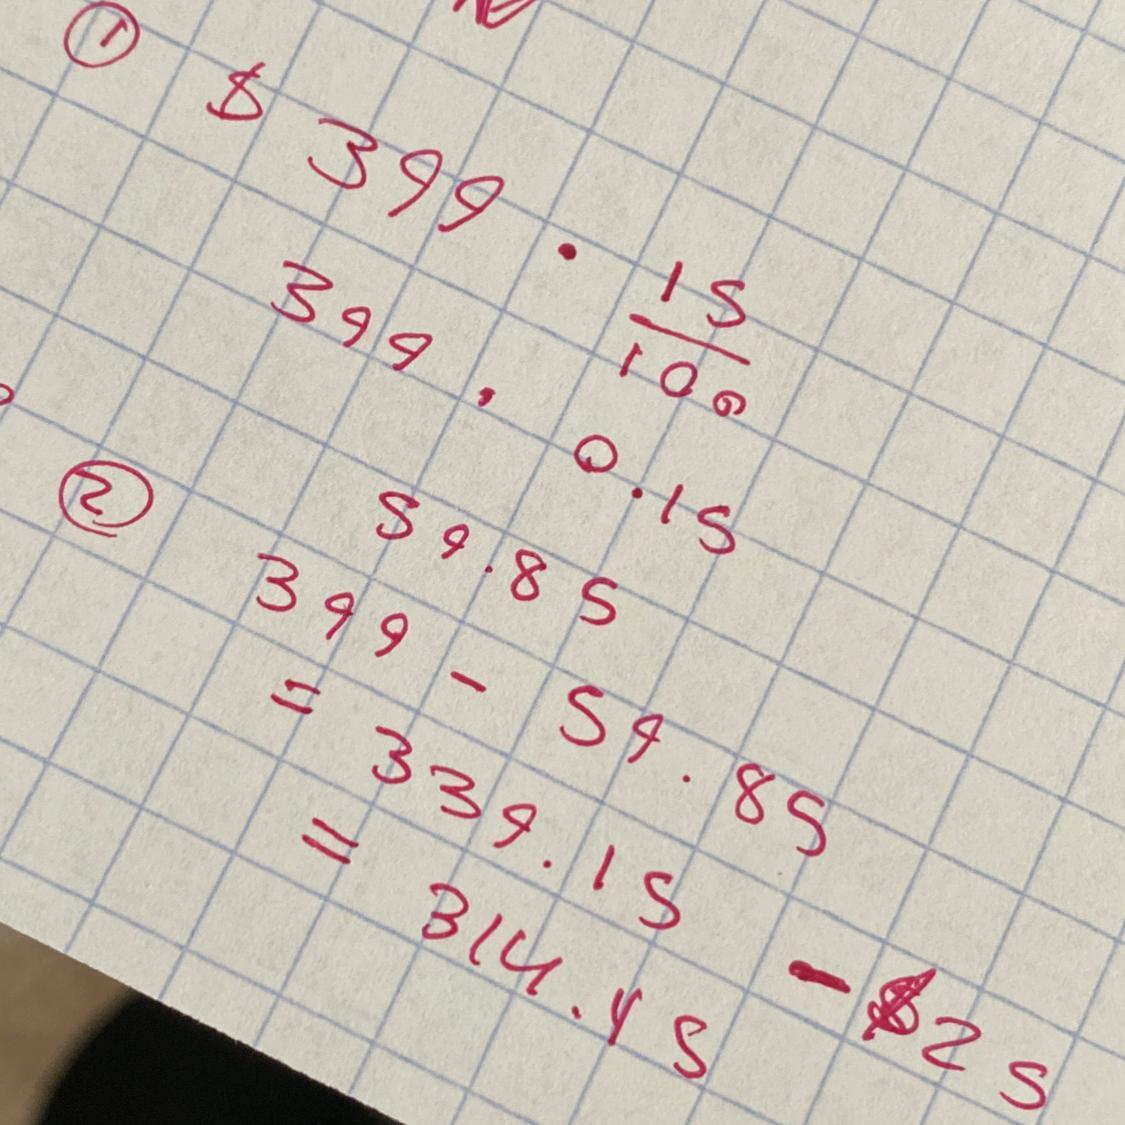 ① $ 399 · 15/100
399 · 0.15
59.85
② 399 - 59.85
= 339.15 - $25
= 314.15